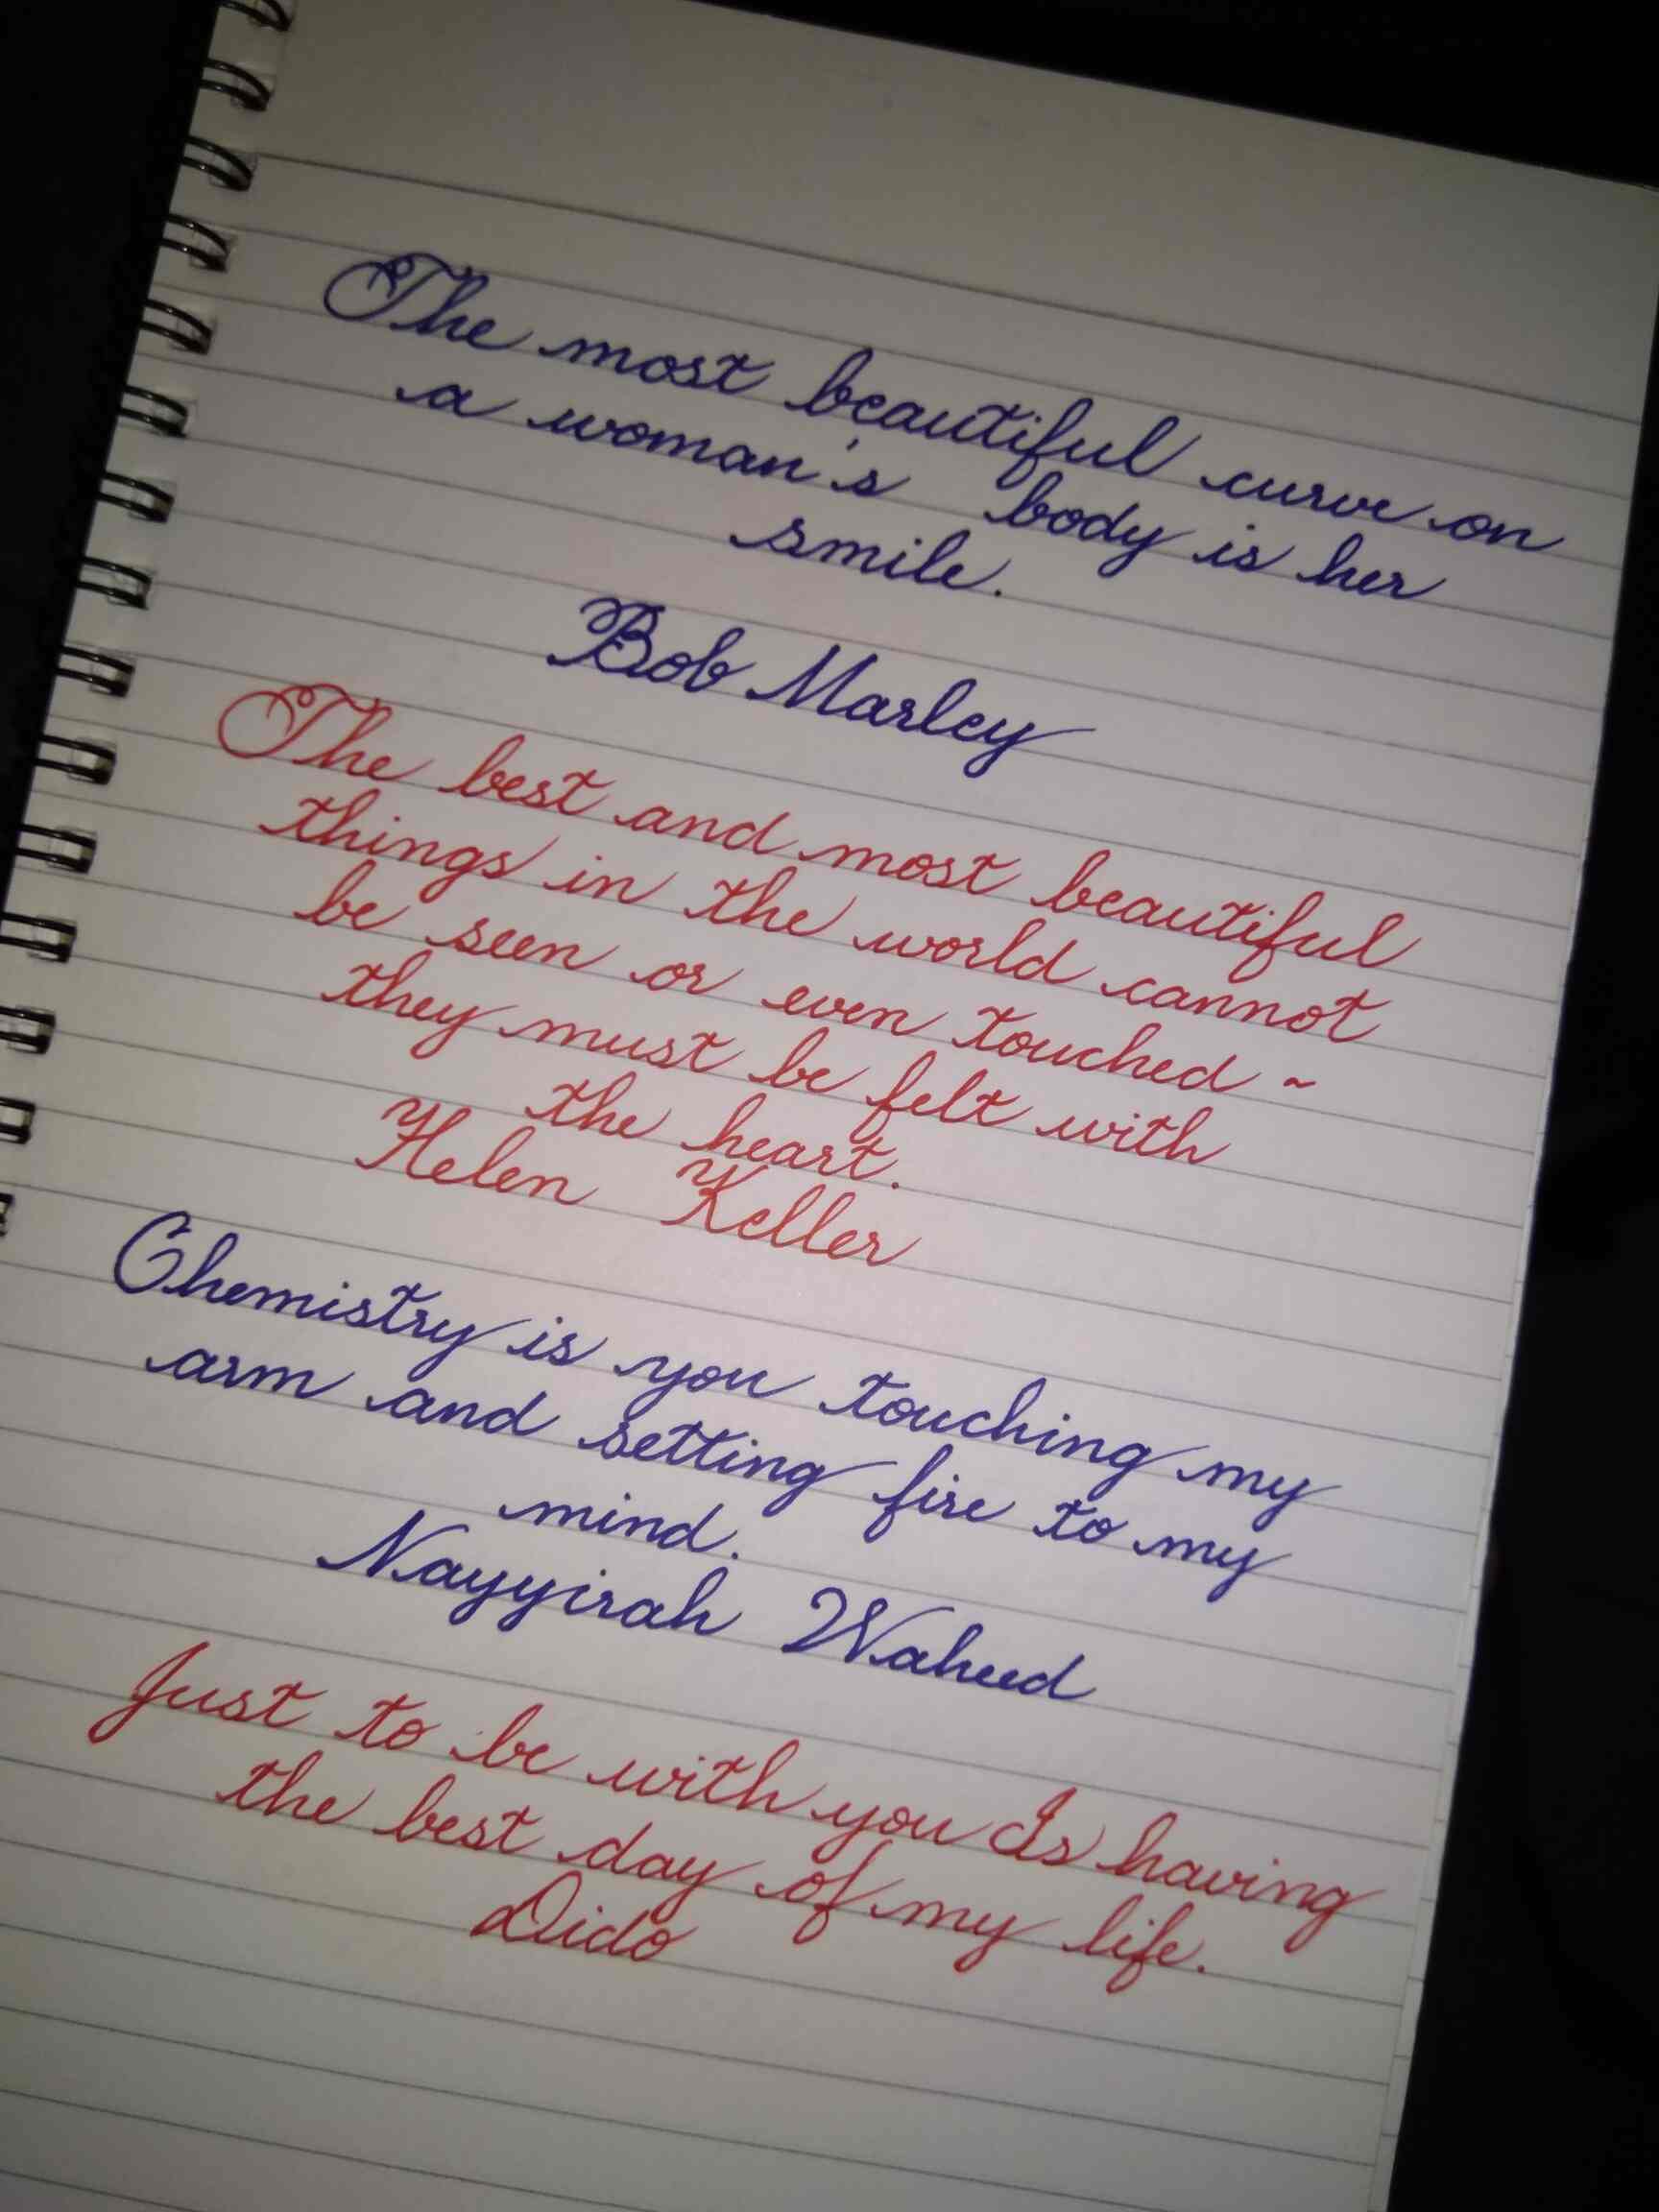 The most beautiful curve on
a woman's body is her
smile.
Bob Marley
The best and most beautiful
things in the world cannot
be seen or even touched ~
they must be felt with
the heart.
Helen Keller
Chemistry is you touching my
arm and setting fire to my
mind.
Nayyirah Waheed
Just to be with you Is having
the best day of my life.
Dido